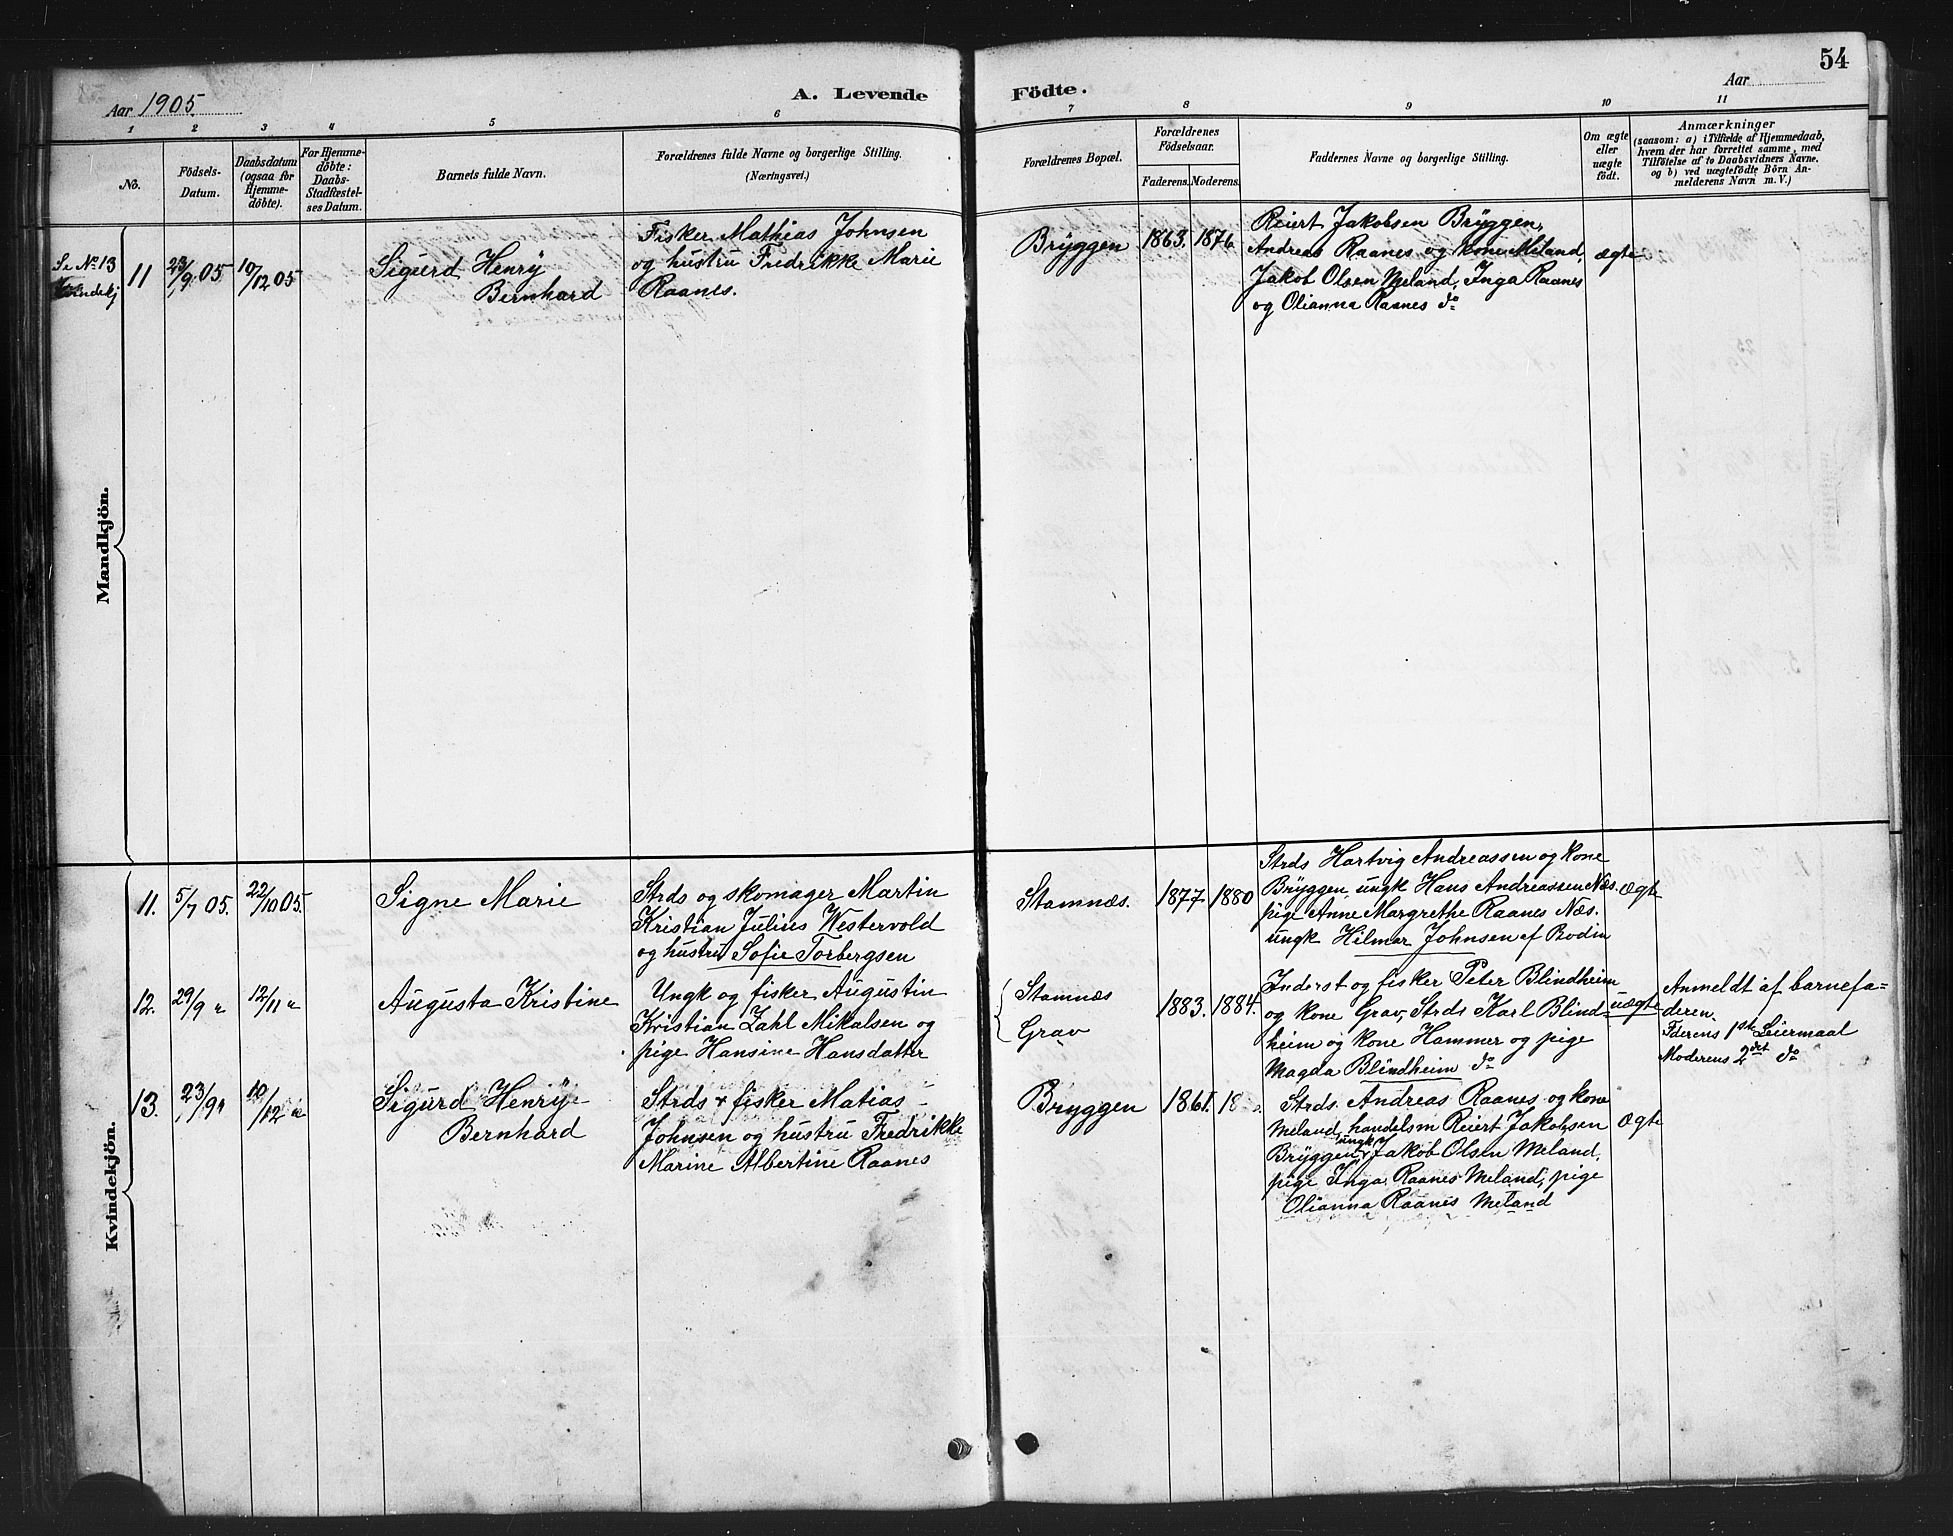 54
Aar 1905.
A. Levende Födte.
Aar
1 2 3 4 5 6 7 8 9 10 11
No.
Födsels-
Datum.
Daabsdatum
(ogsaa for
Hjemme-
döbte).
For Hjemme-
döbte:
Daabs-
Stadfæstel-
ses Datum.
Barnets fulde Navn.
Forældrenes fulde Navne og borgerlige Stilling.
(Næringsvei.)
Forældrenes Bopæl.
Forældrenes
Födselsaar.
Faderens. Moderens.
Faddernes Navne og borgerlige Stilling.
Om ægte
eller
uægte
födt.
Anmærkninger
(saasom: a) i Tilfælde af Hjemmedaab,
hvem der har forrettet samme, med
Tilföielse af to Daabsvidners Navne.
og b) ved uægtefödte Börn An-
melderens Navn m. V.)
Mandkjön.
Se No 13
Kvindekj
11 23/9 05 10/12 05
Sigurd Henry
Bernhard
Fisker Mathias Johnsen
og hustru Fredrikke Marie
Raanes.
Bryggen 1863. 1876
Reiert Jakobsen Bryggen,
Andreas Raanes og kone Meland,
Jakob Olsen Meland, Inga Raanes
og Olianna Raanes do
ægte
Kvindekjön.
11. 5/7 05. 22/10 05.
Signe Marie
Strds og skomager Martin
Kristian Julius Westervold
og hustru Sofie Torbergsen
Stamnæs. 1877 1880
Strds Hartvig Andreassen og kone
Bryggen ungk Hans Andreassen Næs.
pige Anne Margrethe Raanes Næs.
ungk Hilmar Johnsen af Bodin
Ægte
12. 29/9 " 12/11 "
Augusta Kristine
Ungk og fisker Augustin
Kristian Zahl Mikalsen og
pige Hansine Hansdatter
Stamnæs
Grav
1883. 1884.
Inderst og fisker Peter Blindheim
og kone Grav, Strds Karl Blind-
heim og kone Hammer og pige
Magda Blindheim do
uægte
Anmeldt af barnefa-
deren.
Fderens 1ste Leiermaal
Moderens 2det do
13. 23/9 " 10/12 "
Sigurd Henry
Bernhard
Strds & fisker Matias
Johnsen og hustru Fredrikke
Marine Albertine Raanes
Bryggen 1861. 18
Strds. Andreas Raanes og kone
Meland, handelsm Reiert Jakobsen
Bryggen, ungk Jakob Olsen Meland,
pige Inga Raanes Meland, pige
Olianna Raanes Meland
Ægte